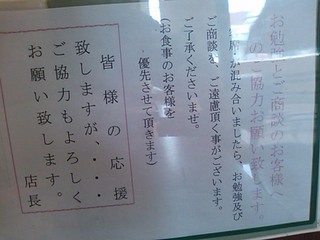 お勉強とご商談のお客様へ
のご協力お願い致します。
席が混み合いましたら、お勉強及び
ご商談を、ご遠慮頂く事がございます。
ご了承くださいませ。
(お食事のお客様を
優先させて頂きます)
皆様の応援
致しますが、・・・・
ご協力もよろしく
お願い致します。
店長